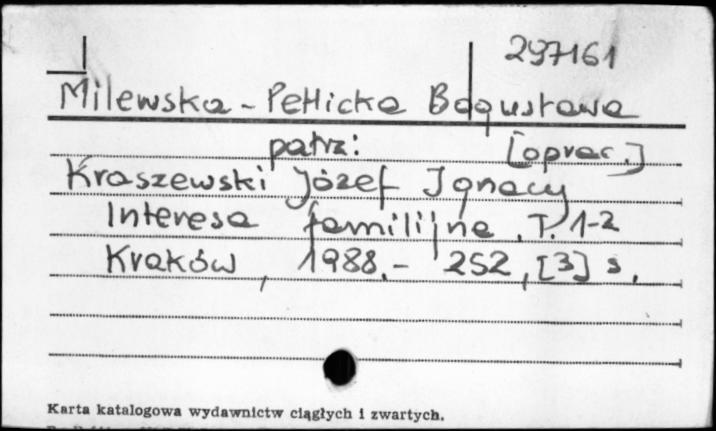 297161
Milewska-Petlicka Bogusława
patrz: [oprac.]
Kraszewski Józef Ignacy
Interesa familijne. T. 1-2
Kraków, 1988.- 252, [3] s.
Karta katalogowa wydawnictw ciągłych i zwartych.